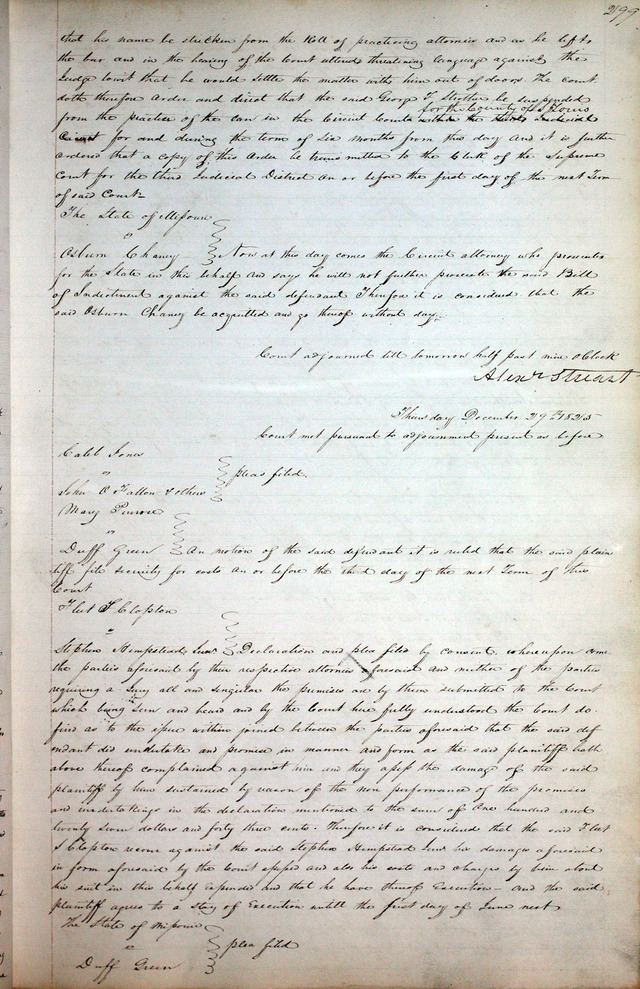 299
that his name be stricken from the Roll of practicing attornies and as he left
the bar and in the hearing of the Court uttered threatning language against the
Judge that he would settle the matter with him out of doors The Court
doth therefore order and direct that the said George F Strother be suspended
for the County of St Louis
from the practice of the law in the Circuit Court within the third Judicial
Circuit for and during the term of six months from this day and it is further
ordered that a copy of this order be transmitted to the Clerk of the Supreme
Court for the third Judicial District on or before the first day of the next Term
of said Court
The State of Missouri
"
Osburn Chaney Now at this day comes the Circuit attorney who prosecutes
for the State in this behalf and says he will not further prosecute the said Bill
of Indictment against the said defendant Therefore it is considered that the
said Osburn Chaney be acquitted and go thereof without day
Court adjourned till tomorrow half past nine oClock
Alexr Stuart
Thursday December 29th 1825
Court met pursuant to adjournment present as before
Caleb Jones
" pleas filed
John O Fallon & others
Mary Penrose
"
Duff Green On motion of the said defendant it is ruled that the said plain
tiff file security for costs on or before the third day of the next Term of this
Court
Fleet S Clopton
"
Stephen Hempstead Junr Declaration and plea filed by consent whereupon came
the parties aforesaid by their respective attornies aforesaid and neither of the parties
requiring a Jury all and singular the premises are by them submitted to the Court
which being seen and heard and by the Court here fully understood the Court do
find as to the issue within joined between the parties aforesaid that the said def
endant did undertake and promise in manner and form as the said plaintiff hath
above thereof complained against him and they assess the damage of the said
plaintiff by him sustained by reason of the non performance of the promises
and undertakings in the declaration mentioned to the sum of one hundred and
twenty seven dollars and forty three cents. Therefore it is considered that the said Fleet
S Clopton recover against the said Stephen Hempstead Junr his damages aforesaid
in form aforesaid by the Court assessed and also his costs and charges by him about
his suit in this behalf expended and that he have thereof Execution - And the said
plaintiff agrees to a stay of Execution untill the first day of June next
The State of Missouri
" plea filed
Duff Green